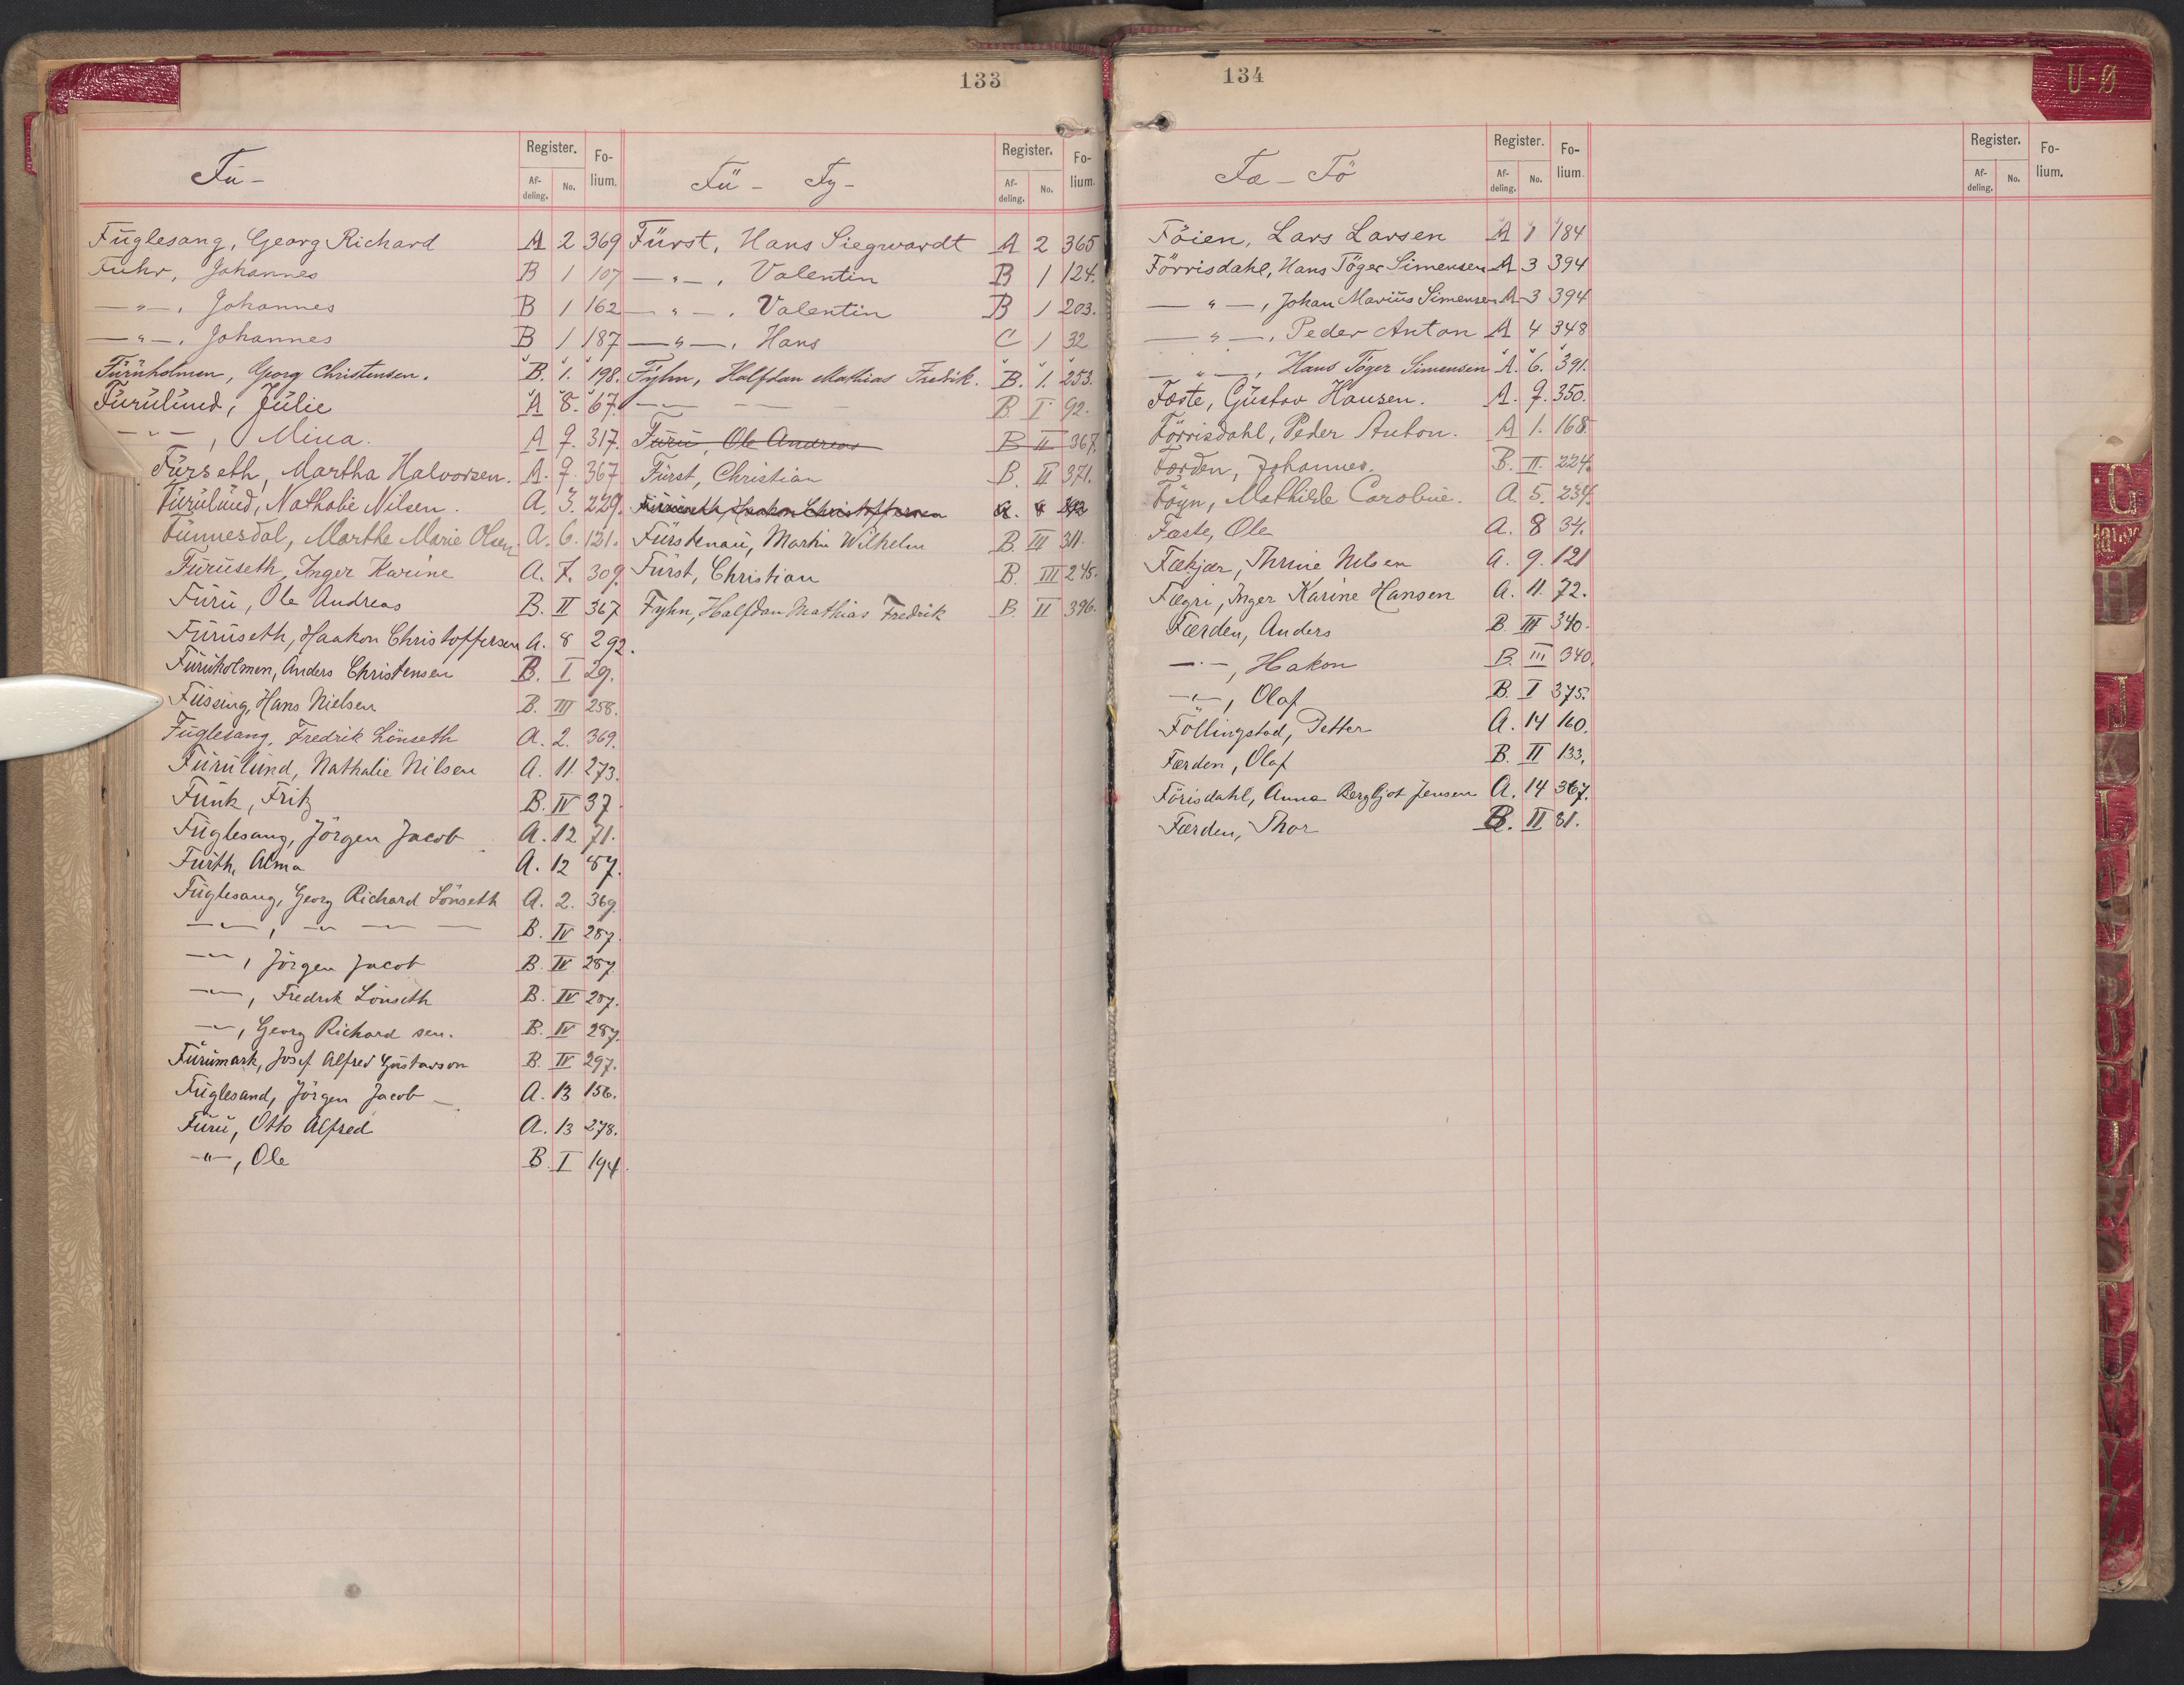 133
Fu-
Register. Fo-
Af- No. lium.
deling.
Fuglesang, Georg Richard A 2 369
Fuhr, Johannes B 1 107
—"—, Johannes B 1 162
—"—, Johannes B 1 187
Furuholmen, Georg Christensen. B. 1. 198.
Furulund, Julie A 8. 67.
—"—, Mina. A 7. 317.
Furseth, Martha Halvorsen. A. 7. 367
Furulund, Nathalie Nilsen. A. 3. 229.
Funnesdal, Marthe Marie Olsen A. 6. 131.
Furuseth, Inger Karine A. 7. 309.
Furu, Ole Andreas B. II 367
Furuseth, Haakon Christoffersen A. 8 292.
Furuholmen, Anders Christensen B. I 29.
Fussing, Hans Nielsen B. III 258.
Fuglesang, Fredrik Lönseth A. 2. 369.
Furulund, Nathalie Nilsen A. 11. 273.
Funk, Fritz B. IV 37.
Fuglesang, Jörgen Jacob A. 12 71.
Furth, Alma A. 12 87.
Fuglesang, Georg Richard Lönseth A. 2. 369.
—"—, —"— —"— — B. IV 287.
—"—, Jörgen Jacob B. IV 287
—"—, Fredrik Lönseth B. IV 287.
—"—, Georg Richard sen. B. IV 287.
Furumark, Josef Alfred Gustavson B. IV 297.
Fuglesand, Jörgen Jacob — A. 13 156.
Furu, Otto Alfred A. 13 278.
—"—, Ole B. I 194.
Fü - Fy-
Register. Fo-
Af- No. lium.
deling.
Fürst, Hans Siegwardt A 2 365
—"—, Valentin B 1 124.
—"—, Valentin B 1 203.
—"—, Hans C 1 32
Fyhn, Halfdan Mathias Fredrik. B. 1. 253.
—"— — B. I 92.
Furu, Ole Andreas B II 367.
Fürst, Christian B. II 371.
Furuseth, Haakon Christoffersen A. 8 292
Fürstenau, Martin Wilhelm B. III 311.
Fürst, Christian B. III 245.
Fyhn, Halfdan Mathias Fredrik B. II 396.
134
U-Ø
Fæ - Fö
Register. Fo-
Af- No. lium.
deling.
Föien, Lars Larsen A 1 184
Förrisdahl, Hans Töger Simensen A 3 394
—"—, Johan Marius Simensen A 3 394
—"—, Peder Anton A 4 348
—"—, Hans Töger Simensen A. 6. 391.
Fæste, Gustav Hansen. A. 7. 350.
Förrisdahl, Peder Anton. A 1. 168.
Færden, Johannes. B. II. 224.
Föyn, Mathilde Caroline. A 5. 234.
Fæste, Ole A. 8 34.
Fækjær, Thrine Nilsen A. 9. 121
Fægri, Inger Karine Hansen A. 11. 72.
Færden, Anders B. III 340.
—"—, Hakon B. III 340.
—"—, Olaf B. I 375.
Föllingstad, Petter A. 14 160.
Færden, Olaf B. II 133.
Förisdahl, Anna Bergljot Jensen A. 14 367.
Færden, Thor B. II 81.
Register. Fo-
Af- No. lium.
deling.
G
H
J
K
L